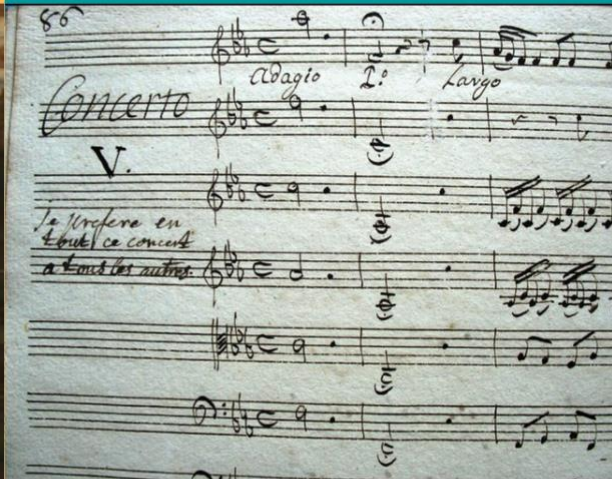 86
Adagio 1º Largo
Concerto
V.
Je prefere en
tout ce concert
a tous les autres.